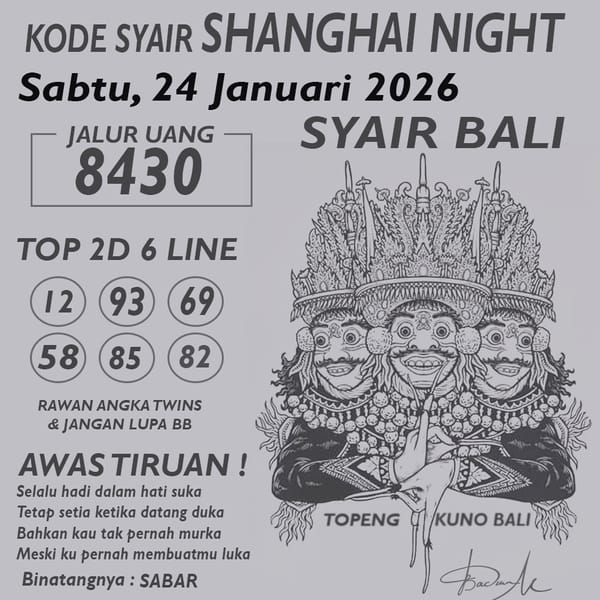 KODE SYAIR SHANGHAI NIGHT
Sabtu, 24 Januari 2026
SYAIR BALI
JALUR UANG
8430
TOP 2D 6 LINE
12 93 69
58 85 82
RAWAN ANGKA TWINS
& JANGAN LUPA BB
AWAS TIRUAN !
Selalu hadi dalam hati suka
Tetap setia ketika datang duka
Bahkan kau tak pernah murka
Meski ku pernah membuatmu luka
Binatangnya : SABAR
TOPENG KUNO BALI